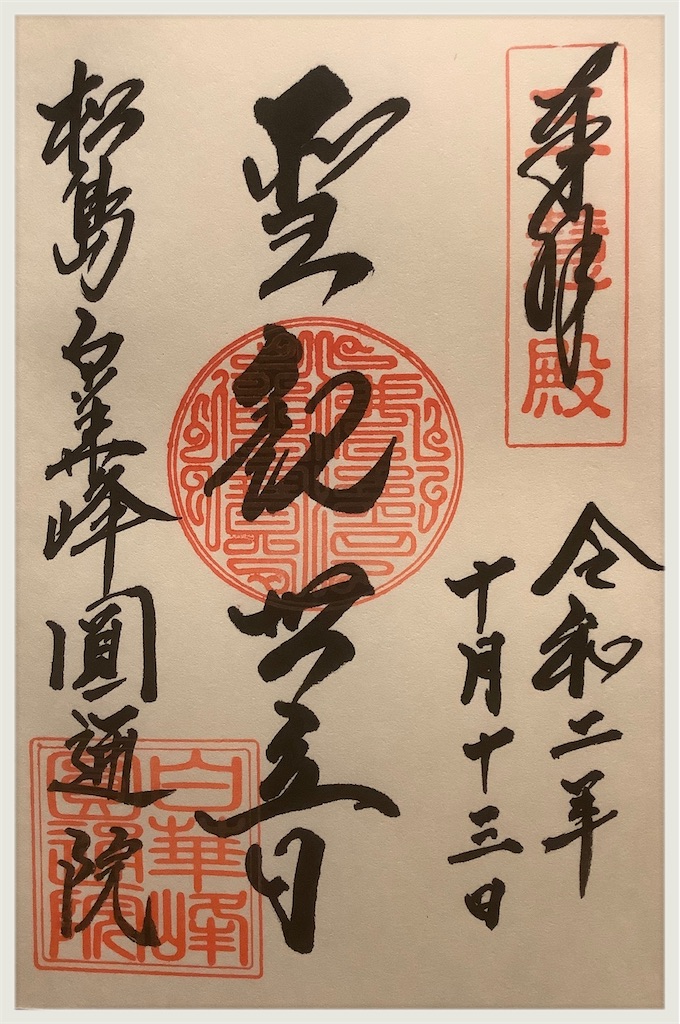 奉拝
三慧殿
令和二年
十月十三日
聖観世音
松島 白華峰 圓通院
白華峰
圓通院